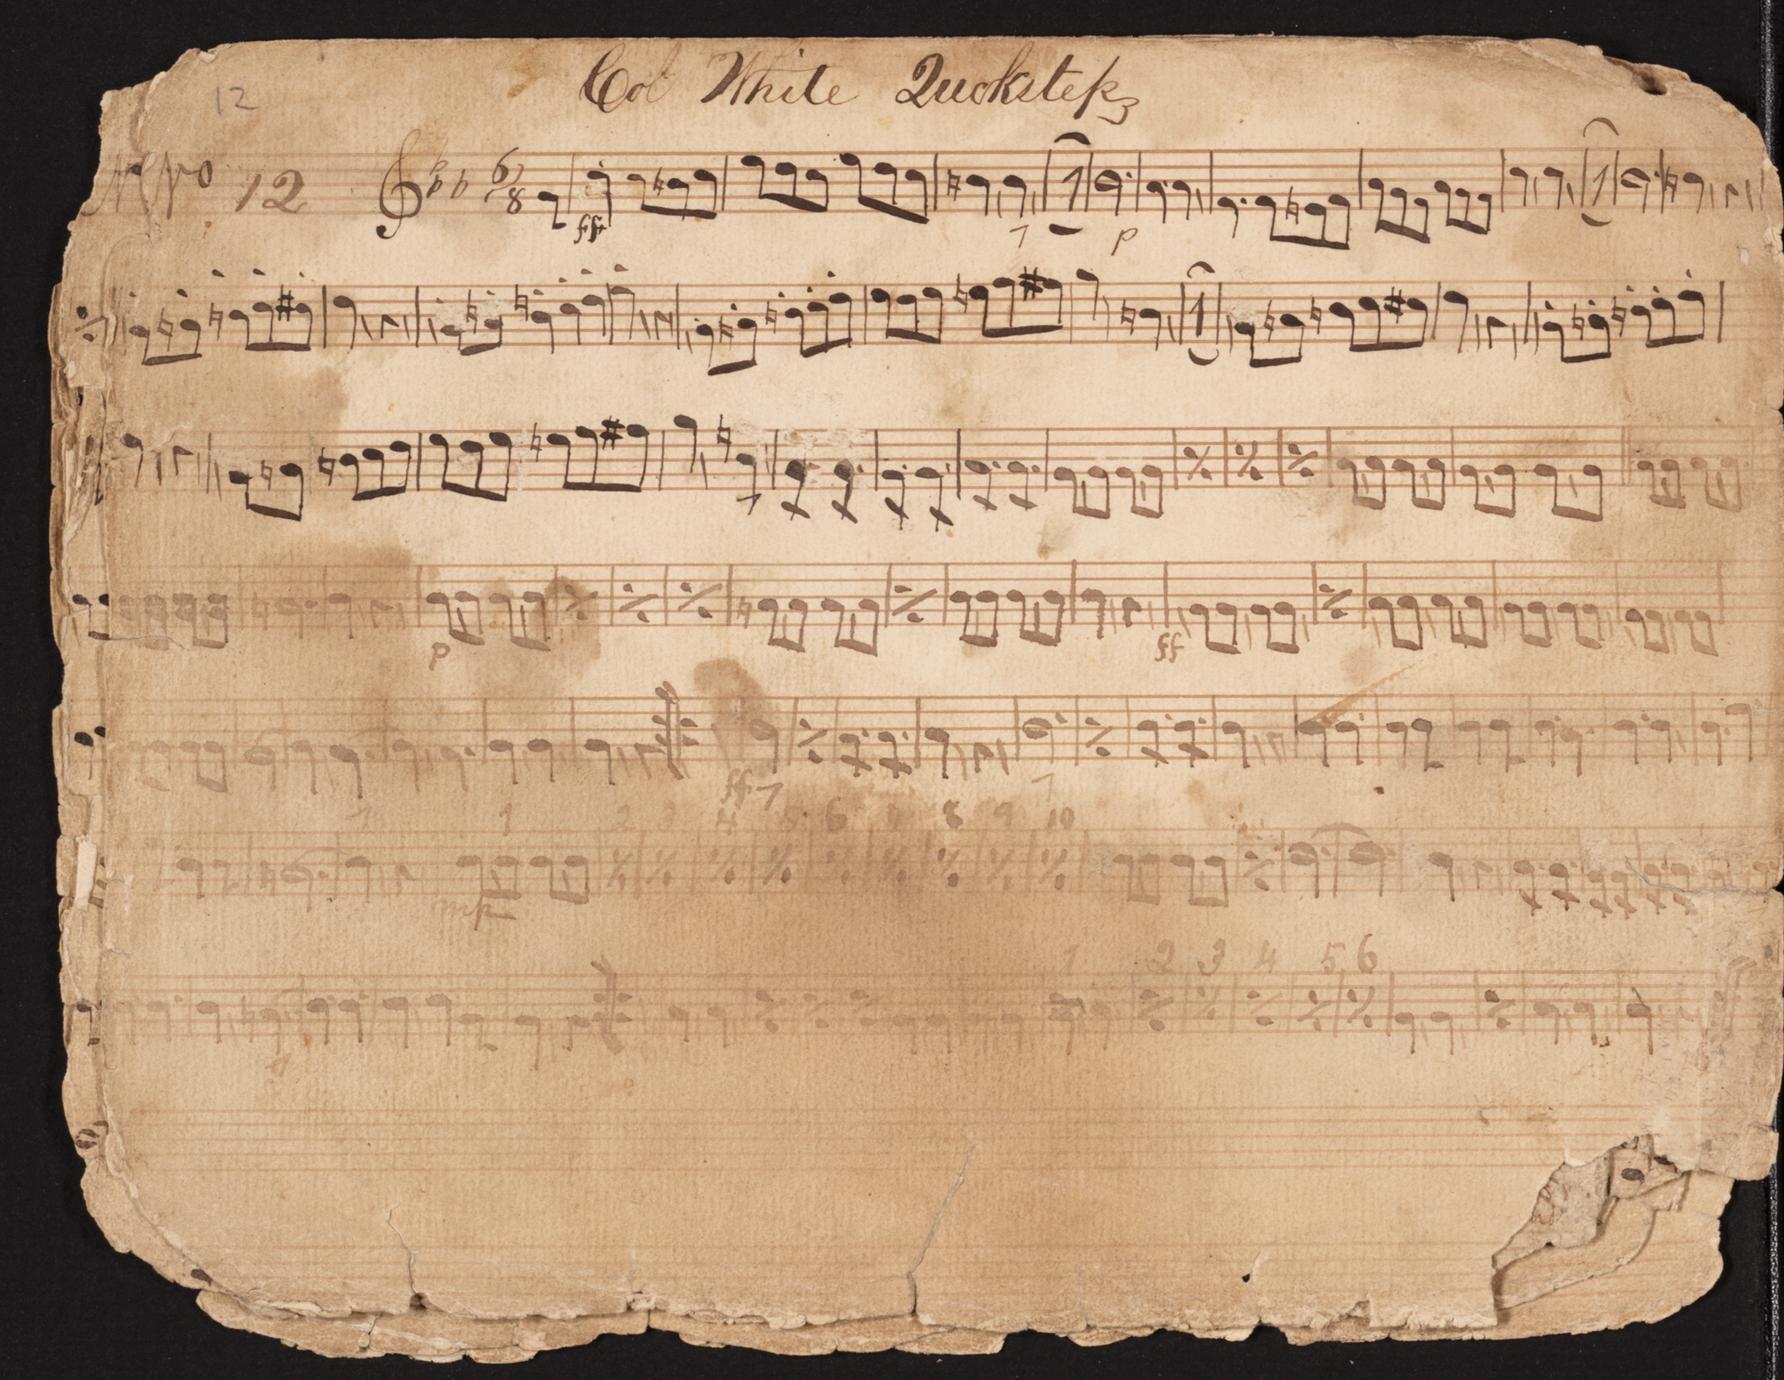 12
Col White Quckstep
No 12 6/8
ff 1 p 1
1
p ff
ff
1 2 3 4 5 6 7 8 9 10
mp
1 2 3 4 5 6